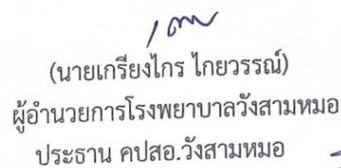 (นายเกรียงไกร ไกยวรรณ์)
ผู้อำนวยการโรงพยาบาลวังสามหมอ
ประธาน คปสอ.วังสามหมอ